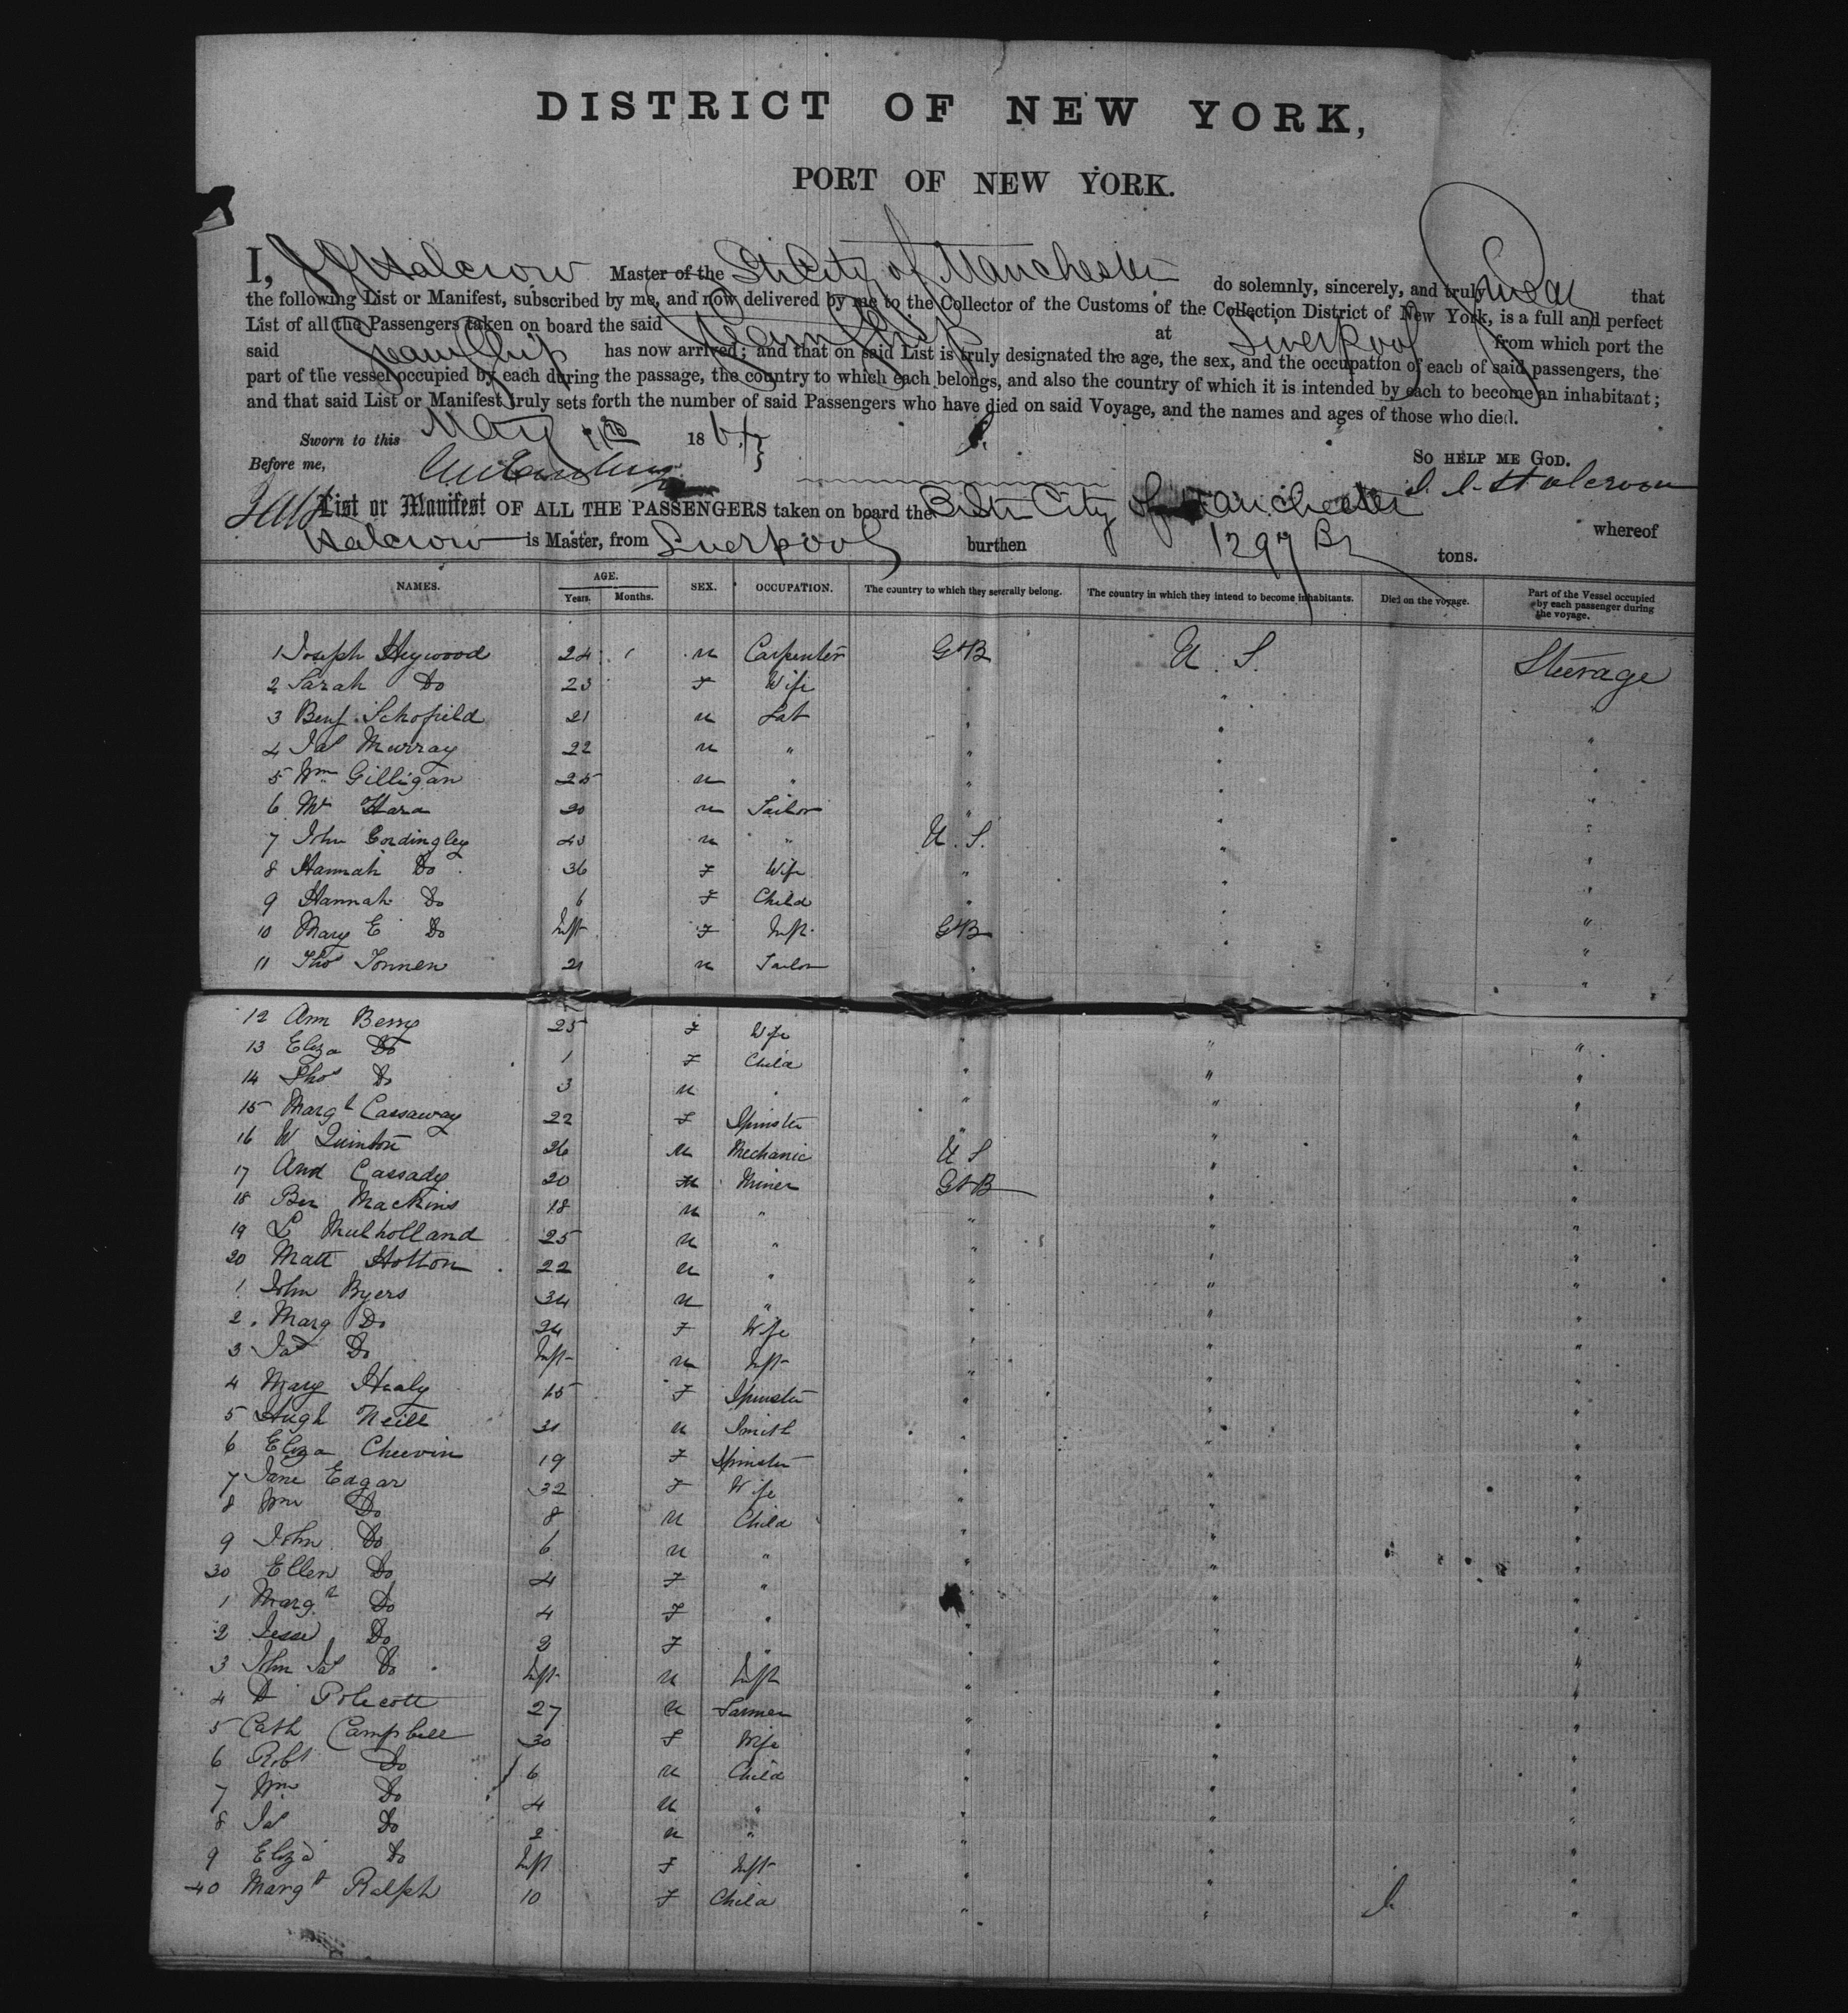 DISTRICT OF NEW YORK,
PORT OF NEW YORK.
I, Halcrow Master of the Str City of Manchester do solemnly, sincerely, and truly swear that
the following List or Manifest, subscribed by me, and now delivered by me to the Collector of the Customs of the Collection District of New York, is a full and perfect
List of all the Passengers taken on board the said Steam Ship at Liverpool from which port the
said Steam Ship has now arrived; and that on said List is truly designated the age, the sex, and the occupation of each of said passengers, the
part of the vessel occupied by each during the passage, the country to which each belongs, and also the country of which it is intended by each to become an inhabitant;
and that said List or Manifest truly sets forth the number of said Passengers who have died on said Voyage, and the names and ages of those who died.
Sworn to this May 186
Before me, SO HELP ME GOD.
Halcrow
List or Manifest OF ALL THE PASSENGERS taken on board the Str City of Manchester whereof
Halcrow is Master, from Liverpool burthen 1297 tons.
NAMES. AGE. Years. Months. SEX. OCCUPATION. The country to which they severally belong. The country in which they intend to become inhabitants. Died on the voyage. Part of the Vessel occupied by each passenger during the voyage.
1 Joseph Heywood 24 M Carpenter Gt B U. S. Steerage
2 Sarah Do 23 F Wife " " "
3 Benj. Schofield 21 M Lab " " "
4 Jas Murray 22 M " " " "
5 Wm Gilligan 25 M " " " "
6 Mr Hara 20 M Tailor " " "
7 John Cordingley 43 M " U. S. " "
8 Hannah Do 36 F Wife " " "
9 Hannah Do 6 F Child " " "
10 Mary E Do Inft F Inft Gt B " "
11 Thos 21 M Tailor " " "
12 Ann Berry 25 F Wife " " "
13 Eliza Do 1 F Child " " "
14 Thos Do 3 M " " " "
15 Margt Cassaway 22 F Spinster " " "
16 W Quinton 26 M Mechanic U S " "
17 And Cassady 20 M Miner Gt B " "
18 Ben Mackins 18 M " " " "
19 L Mulholland 25 M " " " "
20 Matt Hotton 22 M " " " "
1 John Byers 34 M " " " "
2 Marg Do 24 F Wife " " "
3 Jas Do Inft M Inft " " "
4 Mary Healy 15 F Spinster " " "
5 Hugh Neill 31 M Smith " " "
6 Eliza Cheevin 19 F Spinster " " "
7 Jane Edgar 32 F Wife " " "
8 Wm Do 8 M Child " " "
9 John Do 6 M " " " "
30 Ellen Do 4 F " " " "
1 Margt Do 4 F " " " "
2 Jesse Do 2 F " " " "
3 John Jas Do Inft M Inft " " "
4 D Policott 27 M Farmer " " "
5 Cath Campbell 30 F Wife " " "
6 Robt Do 6 M Child " " "
7 Wm Do 4 M " " " "
8 Jas Do 2 M " " " "
9 Eliza Do Inft F Inft " " "
40 Margt Ralph 10 F Child " " "